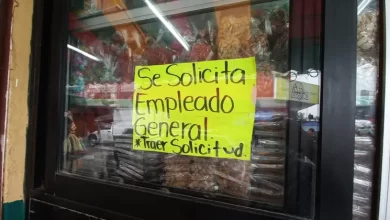 Se Solicita
Empleado
General.
*Traer Solicitud.